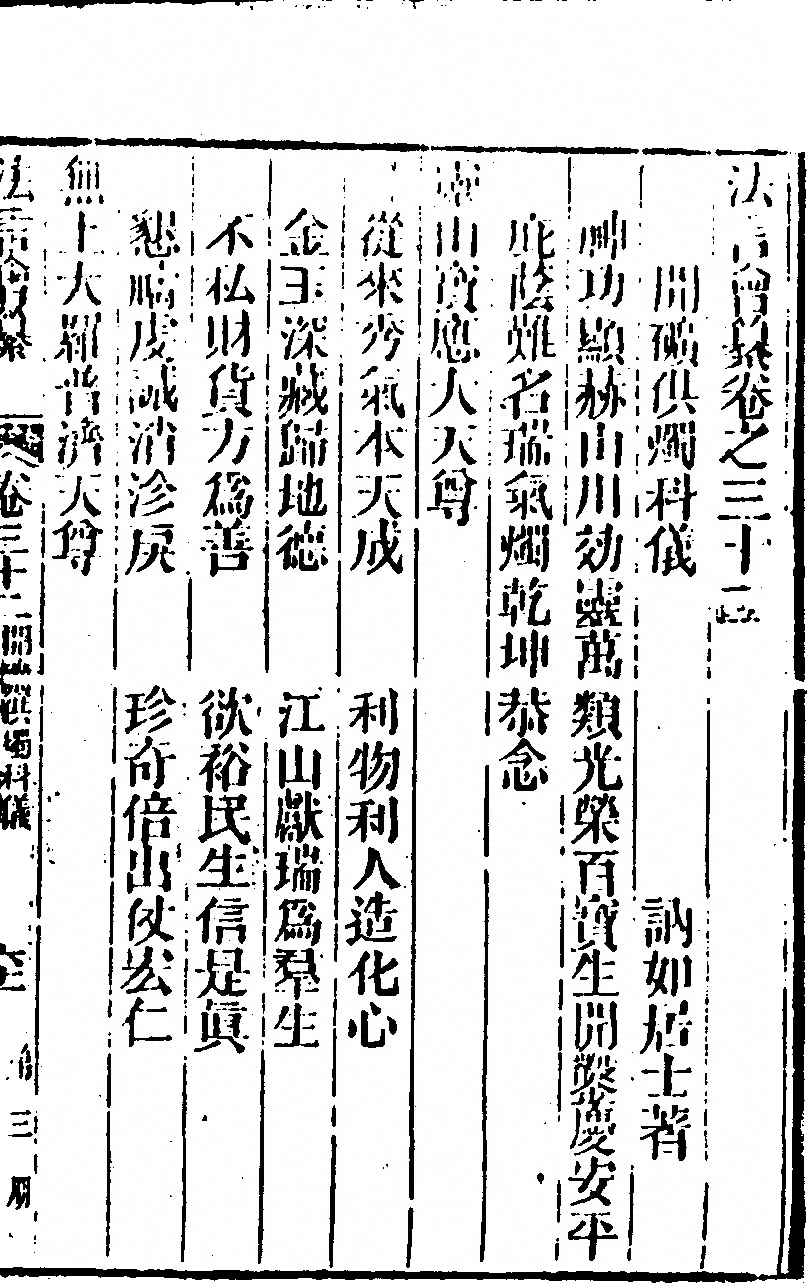 法言會纂卷之三十二
開礦供燭科儀
訥如居士著
神功顯赫山川効靈萬類光榮百寶生開鑿慶安平
庇蔭難名瑞氣燭乾坤恭念
山寶應大天尊
從來秀氣本天成 利物利人造化心
金玉深藏歸地德 江山獻瑞爲羣生
不私財貨方爲善 欲裕民生信是眞
懇賜虔誠消沴戾 珍奇倍出仗宏仁
無上大羅普濟天尊
法言會纂 卷三十二 開礦供燭科儀
三